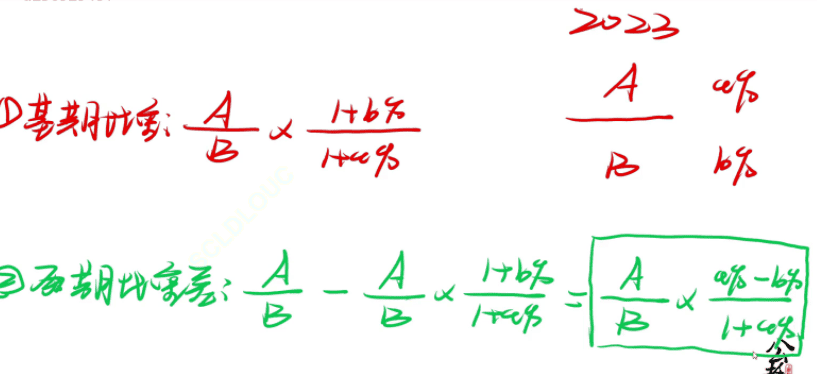 2023
A/B a% b%
①基期比重: A/B × (1+b%)/(1+a%)
②两期比重差: A/B - A/B × (1+b%)/(1+a%) = A/B × (a%-b%)/(1+a%)